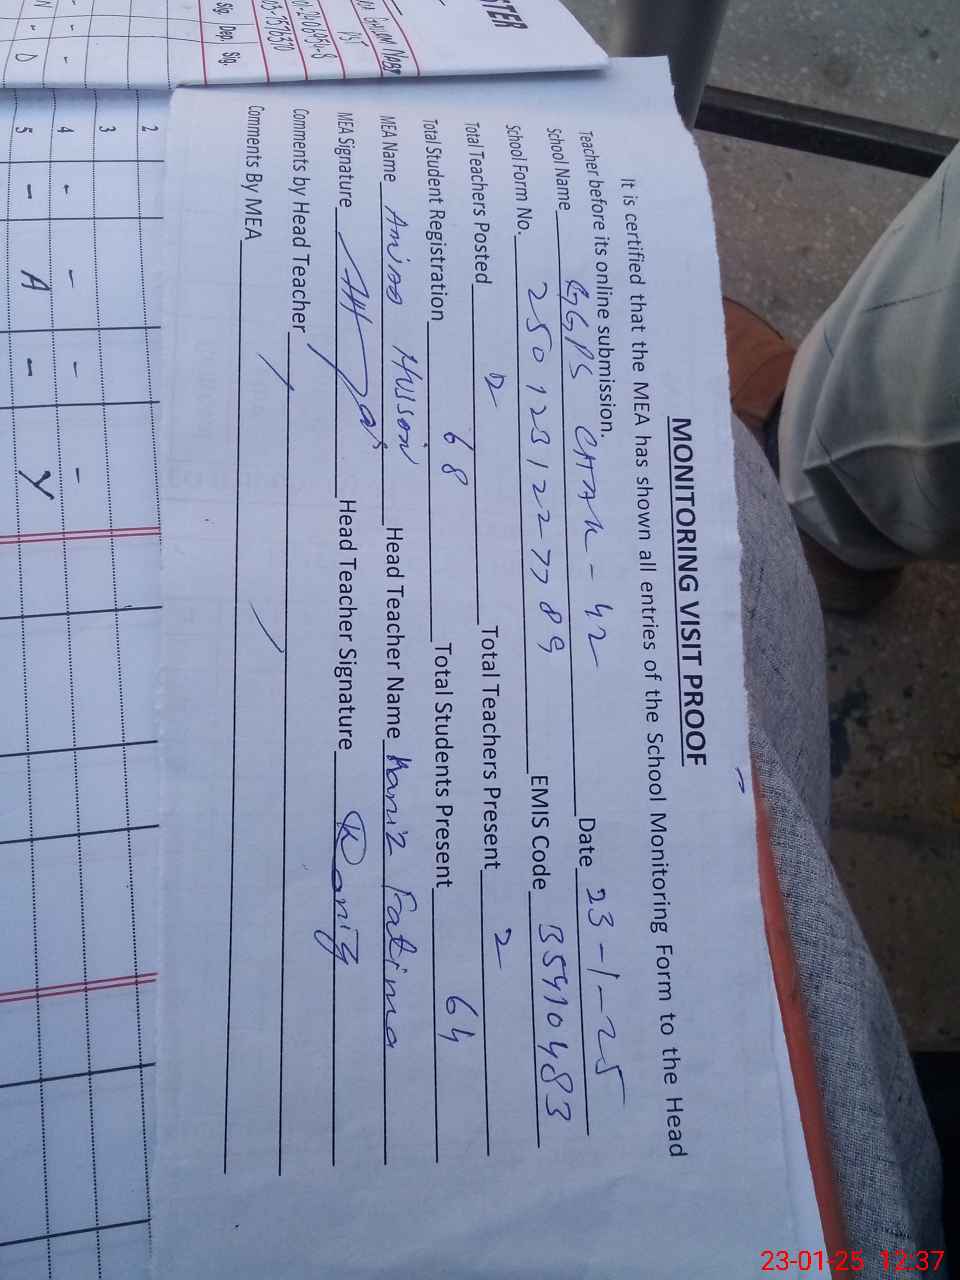 MONITORING VISIT PROOF
It is certified that the MEA has shown all entries of the School Monitoring Form to the Head
Teacher before its online submission.
School Name GGPS CHAK - 42 Date 23-1-25
School Form No. 2501231227789 EMIS Code 35910483
Total Teachers Posted 2 Total Teachers Present 2
Total Student Registration 68 Total Students Present 64
MEA Name Hussain Head Teacher Name Kaniz Fatima
MEA Signature Head Teacher Signature Kaniz
Comments by Head Teacher
Comments By MEA
STER
Sig. Dep. Sig.
2
3
4 - - - -
5 - A - Y
23-01-25 12:37